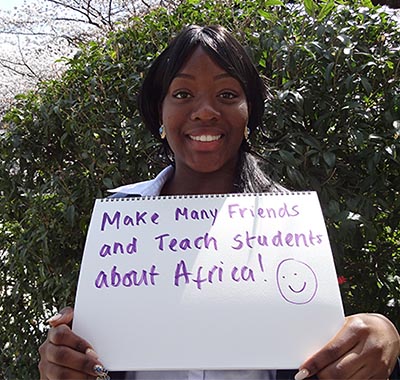 Make Many Friends
and Teach students
about Africa!